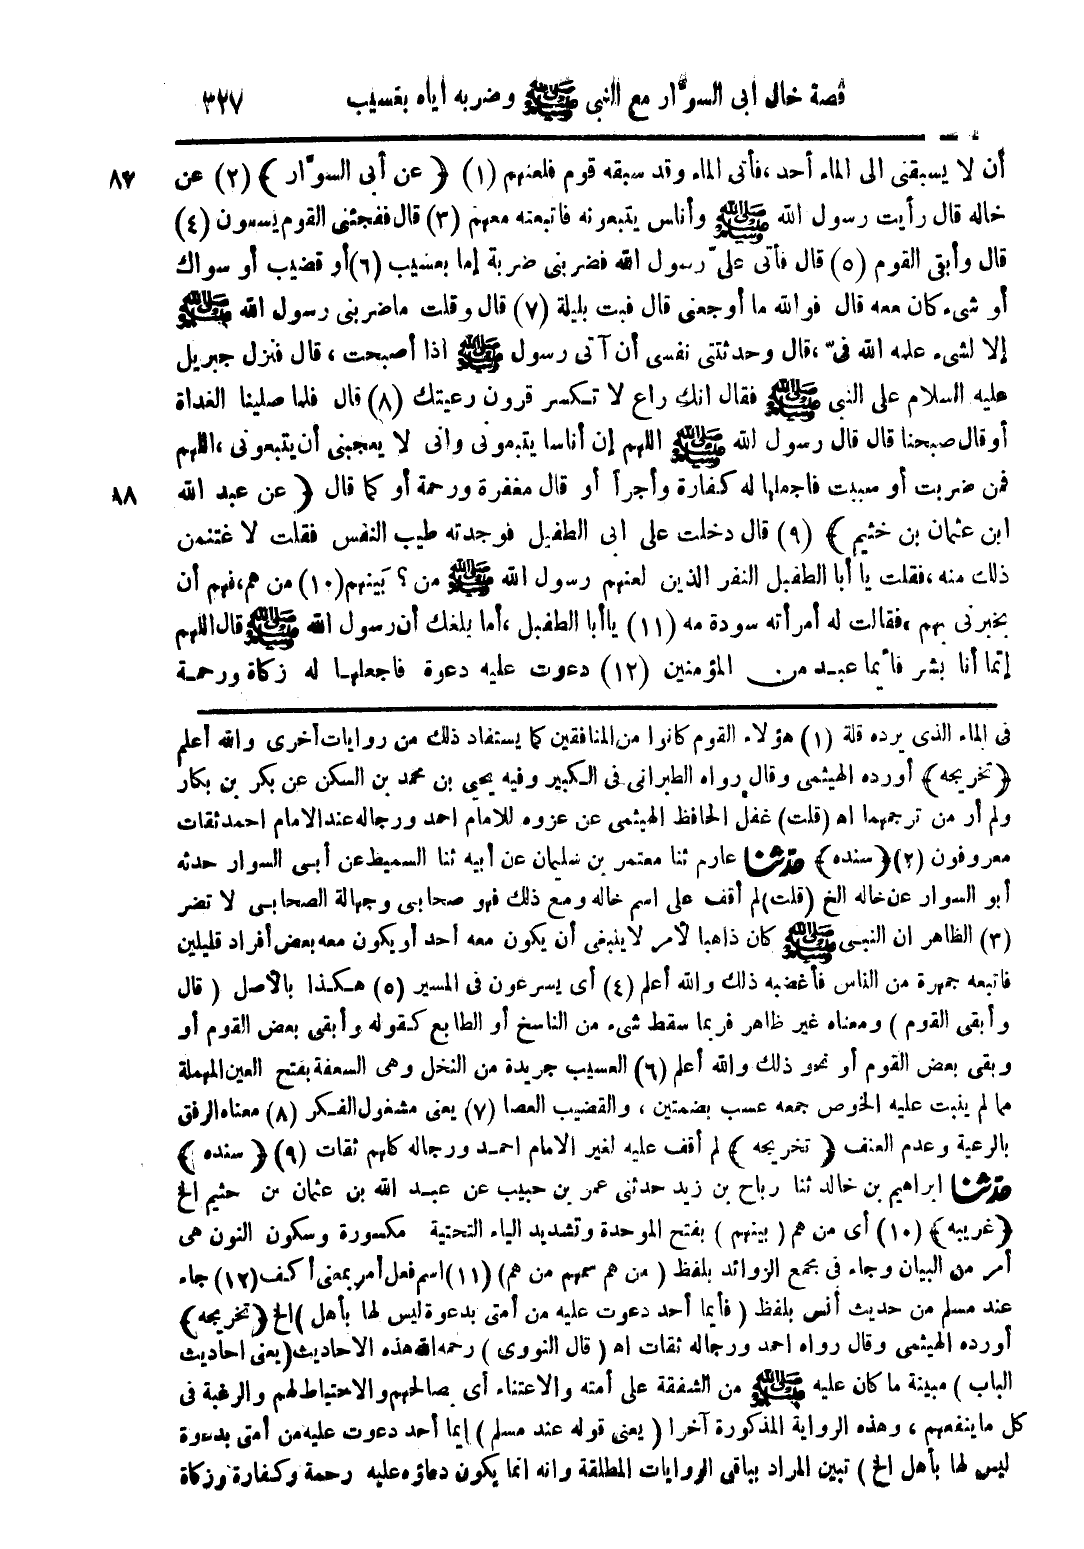 قصة خال ابى السوَّار مع النبى ﷺ وضربه أياه بقسيب ٣٢٧
أن لا يسبقنى الى الماء أحد ،فأتى الماء وقد سبقه قوم فلعنهم (١) ﴿ عن أبى السوَّار ﴾ (٢) عن ٨٧
خاله قال رأيت رسول الله ﷺ وأناس يتبعونه فاتبعته معهم (٣) قال ففجئنى القوم يسعون (٤)
قال وأبقى القوم (٥) قال فأتى علىّ رسول الله فضربنى ضربة إما بعسيب (٦) أو قضيب أو سواك
أو شىء كان معه قال فوالله ما أوجعنى قال فبت بليلة (٧) قال وقلت ماضربنى رسول الله ﷺ
إلا لشىء علمه الله فىّ ،قال وحدثتنى نفسى أن آتى رسول ﷺ اذا أصبحت ، قال فنزل جبريل
عليه السلام على النبى ﷺ فقال انك راع لا تكسر قرون رعيتك (٨) قال فلما صلينا الغداة
أوقال صبحنا قال قال رسول الله ﷺ اللهم إن أناسا يتبعونى وانى لا يعجبنى أن يتبعونى ،اللهم
فمن ضربت أو سببت فاجعلها له كفارة وأجراً أو قال مغفرة ورحمة أو كما قال ﴿ عن عبد الله ٨٨
ابن عثمان بن خثيم ﴾ (٩) قال دخلت على ابى الطفيل فوجدته طيب النفس فقلت لا غتنمن
ذلك منه ،فقلت يا أبا الطفيل النفر الذين لعنهم رسول الله ﷺ من ؟ بَينهم(١٠) من هم،فهم أن
يخبرنى بهم ،فقالت له أمرأته سودة مه (١١) ياأبا الطفيل ،أما بلغك أن رسول الله ﷺ قال اللهم
إنما أنا بشر فأيما عبد من المؤمنين (١٢) دعوت عليه دعوة فاجعلها له زكاة ورحمة
فى الماء الذى يرده قلة (١) هؤلاء القوم كانوا من المنافقين كما يستفاد ذلك من روايات أخرى والله أعلم
﴿تخريجه﴾ أورده الهيثمى وقال رواه الطبرانى فى الكبير وفيه يحيى بن محمد بن السكن عن بكر بن بكار
ولم أر من ترجمهما اه (قلت) غفل الحافظ الهيثمى عن عزوه للامام احمد ورجاله عند الامام احمد ثقات
معروفون (٢)﴿سنده﴾ حدثنا عارم ثنا معتمر بن سليمان عن أبيه ثنا السميط عن أبى السوار حدثه
أبو السوار عن خاله الخ (قلت) لم أقف على اسم خاله ومع ذلك فهو صحابى وجهالة الصحابى لا تضر
(٣) الظاهر ان النبى ﷺ كان ذاهبا لأمر لاينبغى أن يكون معه أحد أويكون معه بعض أفراد قليلين
فاتبعه جمهرة من الناس فأغضبه ذلك والله أعلم (٤) أى يسرعون فى المسير (٥) هكذا بالأصل ( قال
وأبقى القوم ) ومعناه غير ظاهر فربما سقط شىء من الناسخ أو الطابع كقوله وأبقى بعض القوم أو
وبقى بعض القوم أو نحو ذلك والله أعلم (٦) العسيب جريدة من النخل وهى السعفة بفتح العين المهملة
مما لم ينبت عليه الخوص جمعه عسب بضمتين ، والقضيب العصا (٧) يعنى مشغول الفكر (٨) معناه الرفق
بالرعية وعدم العنف ﴿ تخريجه ﴾ لم أقف عليه لغير الامام احمد ورجاله كلهم ثقات (٩) ﴿ سنده ﴾
حدثنا ابراهيم بن خالد ثنا رباح بن زيد حدثنى عمر بن حبيب عن عبد الله بن عثمان بن خثيم الخ
﴿غريبه﴾ (١٠) أى من هم ( بينهم ) بفتح الموحدة وتشديد الياء التحتية مكسورة وسكون النون هى
أمر من البيان وجاء فى مجمع الزوائد بلفظ ( من هم سمهم من هم) (١١)اسم فعل أمر بمعنى أكفف (١٢) جاء
عند مسلم من حديث أنس بلفظ ( فأيما أحد دعوت عليه من أمتى بدعوة ليس لها بأهل )الخ ﴿تخريجه﴾
أورده الهيثمى وقال رواه احمد ورجاله ثقات اه ( قال النووى ) رحمه الله هذه الاحاديث (يعنى احاديث
الباب ) مبينة ما كان عليه ﷺ من الشفقة على أمته والاعتناء أى بصالحهم والاحتياط لهم والرغبة فى
كل ماينفعهم ، وهذه الرواية المذكورة آخرا ( يعنى قوله عند مسلم ) إيما أحد دعوت عليه من أمتى بدعوة
ليس لها بأهل الخ ) تبين المراد بباقى الروايات المطلقة وانه انما يكون دعاؤه عليه رحمة وكفارة وزكاة